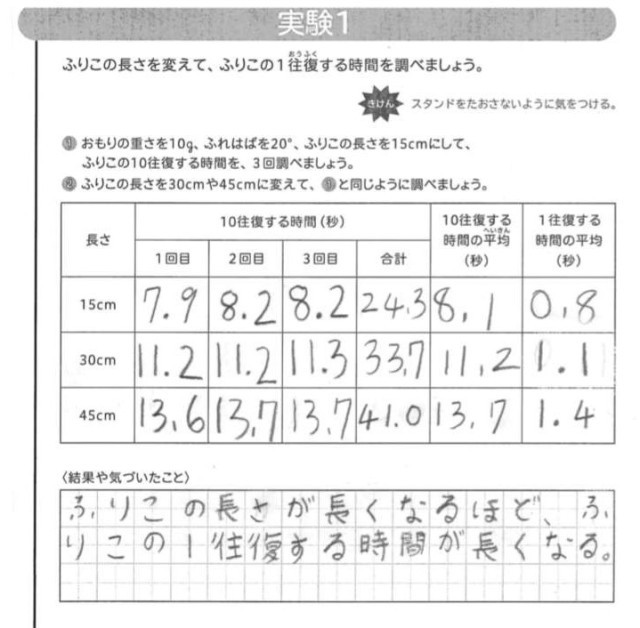 実験1
おうふく
ふりこの長さを変えて、ふりこの1往復する時間を調べましょう。
きけん スタンドをたおさないように気をつける。
おもりの重さを10g、ふれはばを20°、ふりこの長さを15cmにして、
ふりこの10往復する時間を、3回調べましょう。
ふりこの長さを30cmや45cmに変えて、 と同じように調べましょう。
長さ 10往復する時間(秒) 10往復する時間の平均(秒) 1往復する時間の平均(秒)
へいきん
1回目 2回目 3回目 合計
15cm 7.9 8.2 8.2 24.3 8.1 0.8
30cm 11.2 11.2 11.3 33.7 11.2 1.1
45cm 13.6 13.7 13.7 41.0 13.7 1.4
〈結果や気づいたこと〉
ふりこの長さが長くなるほど、ふ
りこの1往復する時間が長くなる。